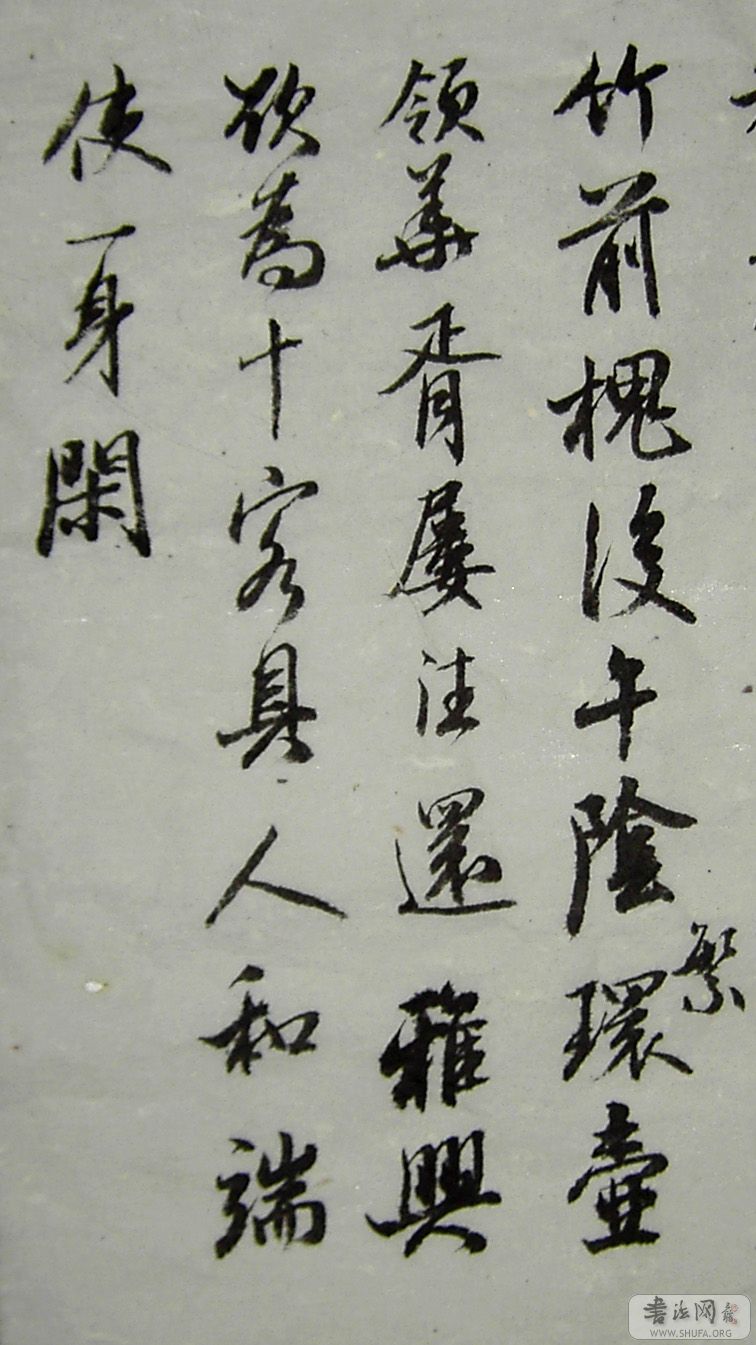 竹前槐後午陰繁環壺
領華胥屢往還雅興
欲為十客具人和端
使一身閑
书法网
WWW.SHUFA.ORG